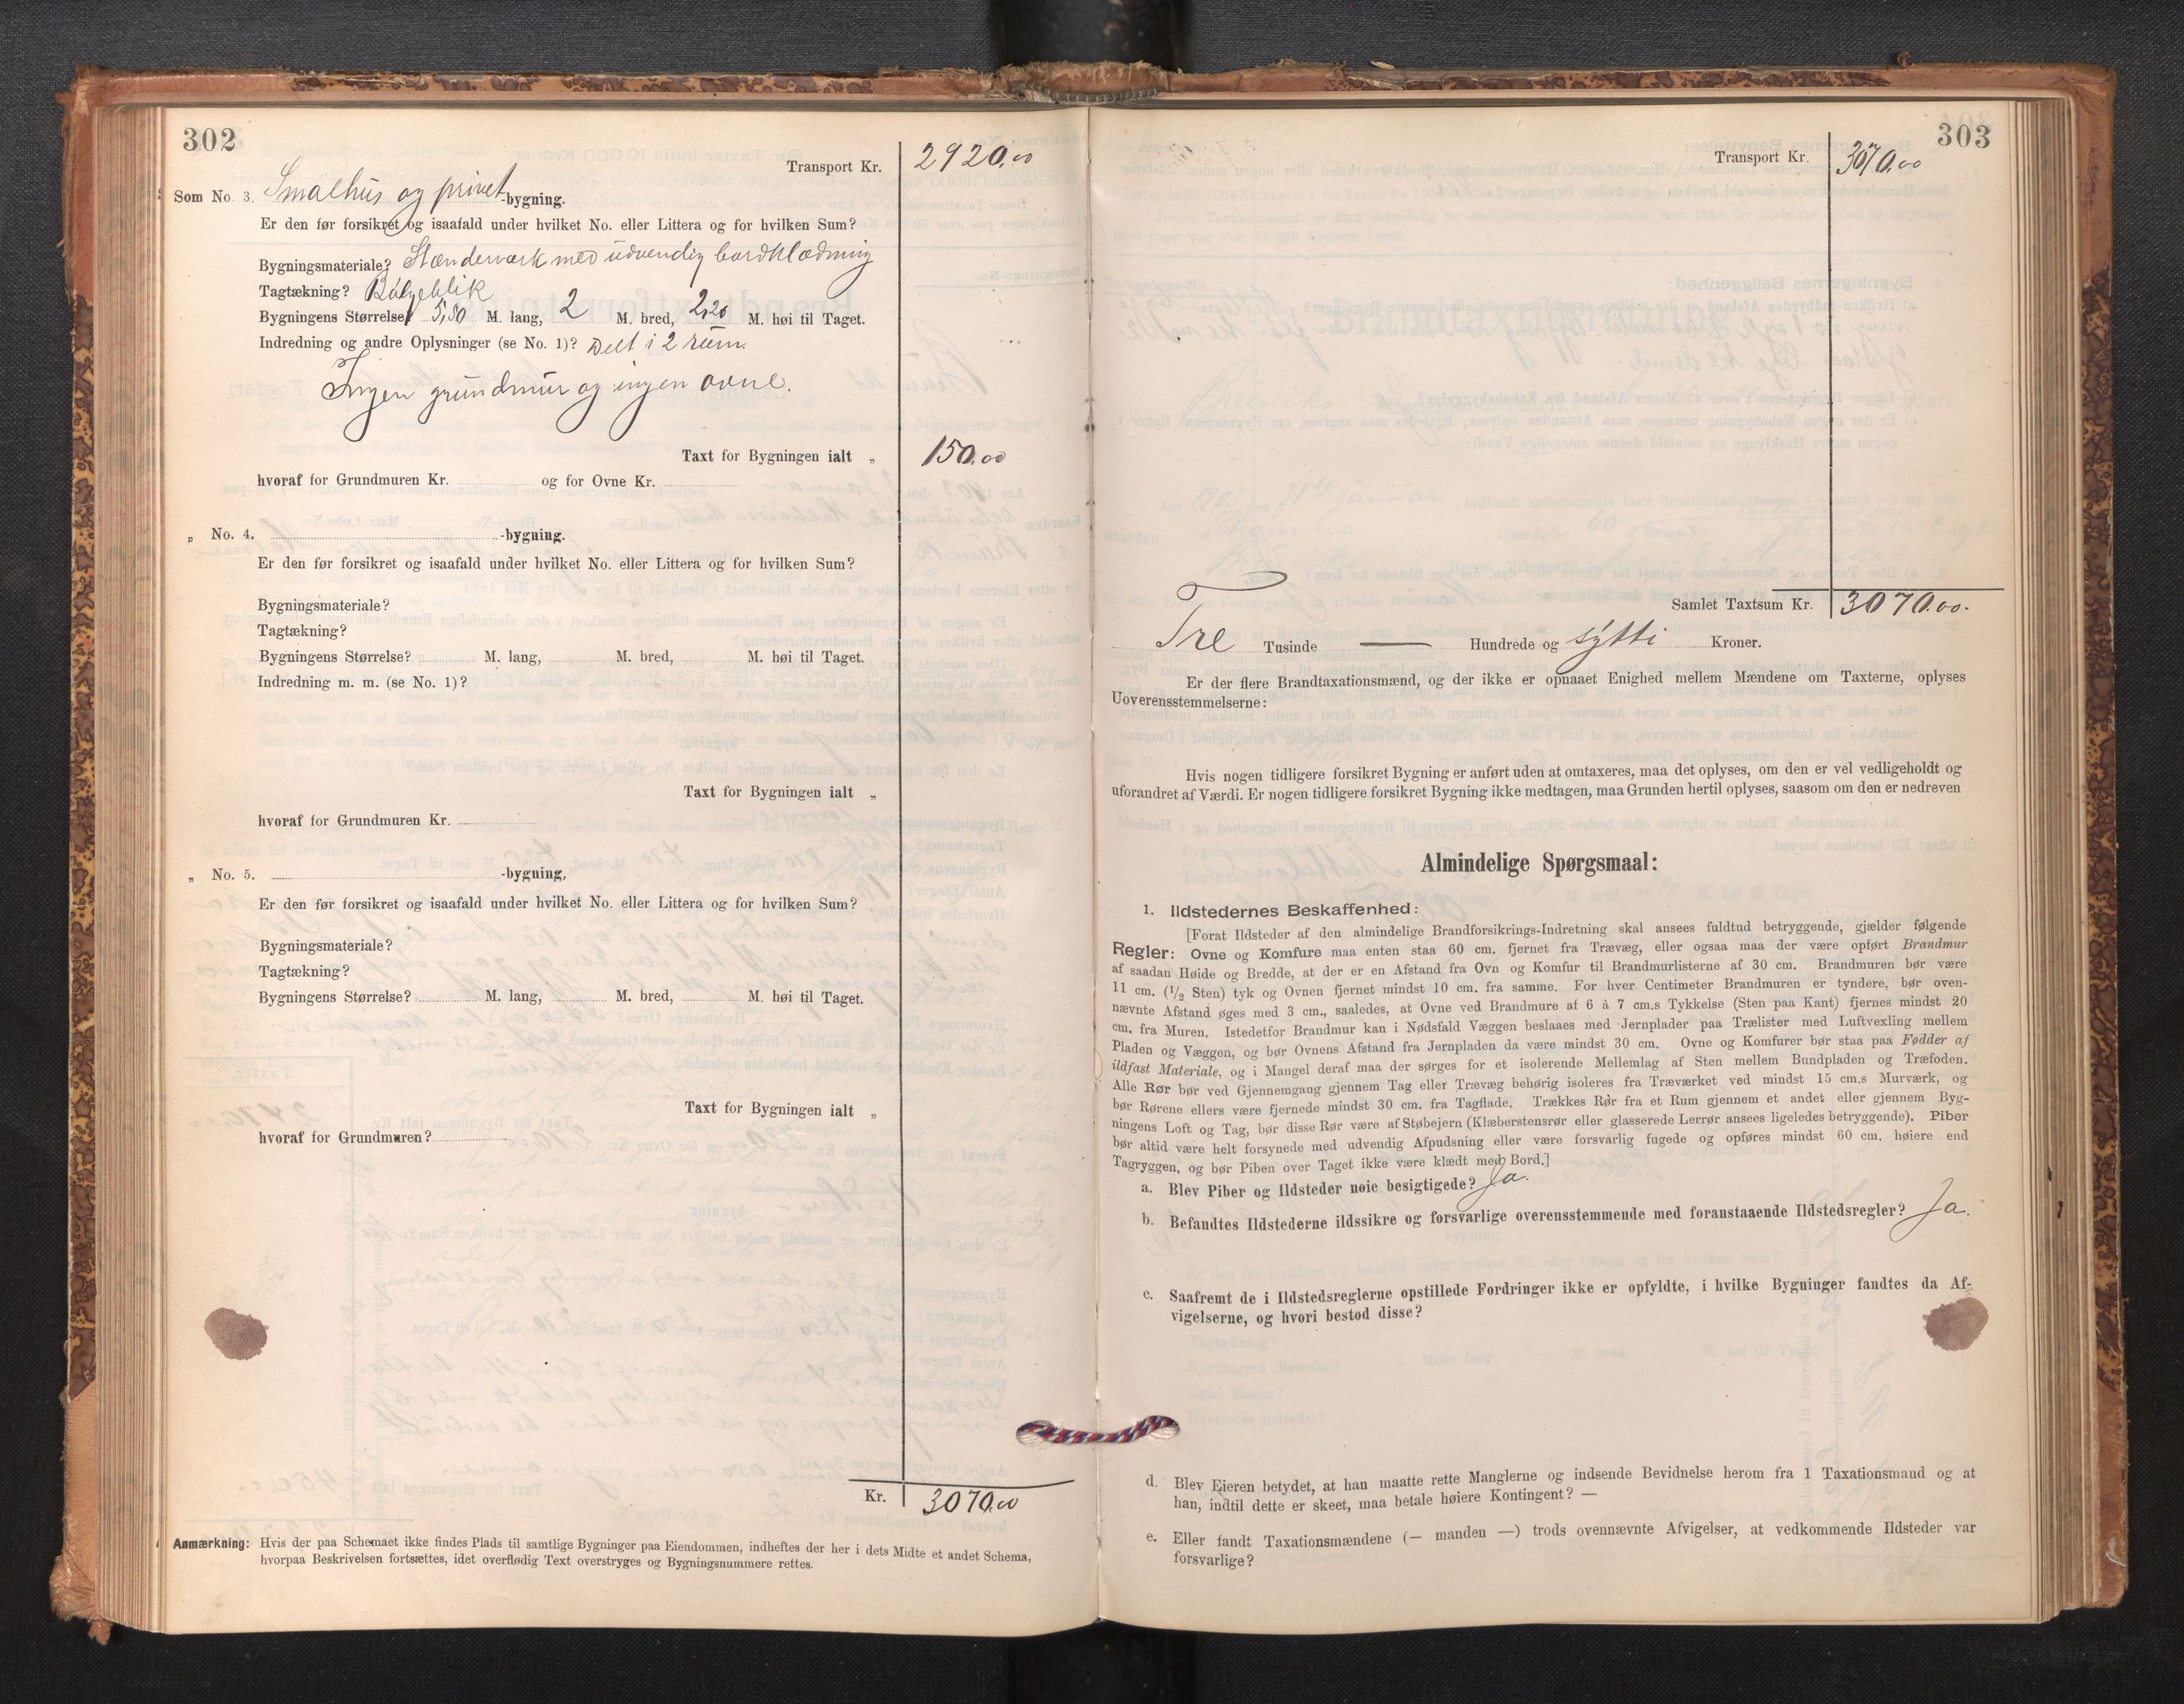 302
Transport Kr. 2920.00
Som No. 3. Smalhus og privet -bygning.
Er den før forsikret og isaafald under hvilket No. eller Littera og for hvilken Sum?
Bygningsmateriale? Stænderværk med udvendig bordklædning
Tagtækning? Bølgeblik
Bygningens Størrelse? 5,50 M. lang, 2 M. bred, 2,20 M. høi til Taget.
Indredning og andre Oplysninger (se No. 1)? Delt i 2 rum.
Ingen grundmur og ingen ovne.
Taxt for Bygningen ialt „ 150.00
hvoraf for Grundmuren Kr. og for Ovne Kr.
„ No. 4. -bygning.
Er den før forsikret og isaafald under hvilket No. eller Littera og for hvilken Sum?
Bygningsmateriale?
Tagtækning?
Bygningens Størrelse? M. lang, M. bred, M. høi til Taget.
Indredning m. m. (se No. 1)?
Taxt for Bygningen ialt „
hvoraf for Grundmuren Kr.
„ No. 5. -bygning,
Er den før forsikret og isaafald under hvilket No. eller Littera og for hvilken Sum?
Bygningsmateriale?
Tagtækning?
Bygningens Størrelse? M. lang, M. bred, M. høi til Taget.
Taxt for Bygningen ialt „
hvoraf for Grundmuren?
Kr. 3070.00
Anmærkning: Hvis der paa Schemaet ikke findes Plads til samtlige Bygninger paa Eiendommen, indheftes der her i dets Midte et andet Schema,
hvorpaa Beskrivelsen fortsættes, idet overflødig Text overstryges og Bygningsnummere rettes.
303
Transport Kr. 3070.00
Samlet Taxtsum Kr. 3070.00.
Tre Tusinde — Hundrede og sytti Kroner.
Er der flere Brandtaxationsmænd, og der ikke er opnaaet Enighed mellem Mændene om Taxterne, oplyses
Uoverensstemmelserne:
Hvis nogen tidligere forsikret Bygning er anført uden at omtaxeres, maa det oplyses, om den er vel vedligeholdt og
uforandret af Værdi. Er nogen tidligere forsikret Bygning ikke medtagen, maa Grunden hertil oplyses, saasom om den er nedreven
Almindelige Spørgsmaal:
1. Ildstedernes Beskaffenhed:
[Forat Ildsteder af den almindelige Brandforsikrings-Indretning skal ansees fuldtud betryggende, gjælder følgende
Regler: Ovne og Komfure maa enten staa 60 cm. fjernet fra Trævæg, eller ogsaa maa der være opført Brandmur
af saadan Høide og Bredde, at der er en Afstand fra Ovn og Komfur til Brandmurlisterne af 30 cm. Brandmuren bør være
11 cm. (1/2 Sten) tyk og Ovnen fjernet mindst 10 cm. fra samme. For hver Centimeter Brandmuren er tyndere, bør oven-
nævnte Afstand øges med 3 cm., saaledes, at Ovne ved Brandmure af 6 à 7 cm.s Tykkelse (Sten paa Kant) fjernes mindst 20
cm. fra Muren. Istedetfor Brandmur kan i Nødsfald Væggen beslaaes med Jernplader paa Trælister med Luftvexling mellem
Pladen og Væggen, og bør Ovnens Afstand fra Jernpladen da være mindst 30 cm. Ovne og Komfurer bør staa paa Fødder af
ildfast Materiale, og i Mangel deraf maa der sørges for et isolerende Mellemlag af Sten mellem Bundpladen og Træfoden.
Alle Rør bør ved Gjennemgang gjennem Tag eller Trævæg behørig isoleres fra Træværket ved mindst 15 cm.s Murværk, og
bør Rørene ellers være fjernede mindst 30 cm. fra Tagflade. Trækkes Rør fra et Rum gjennem et andet eller gjennem Byg-
ningens Loft og Tag, bør disse Rør være af Støbejern (Klæberstensrør eller glasserede Lerrør ansees ligeledes betryggende). Piber
bør altid være helt forsynede med udvendig Afpudsning eller være forsvarlig fugede og opføres mindst 60 cm. høiere end
Tagryggen, og bør Piben over Taget ikke være klædt med Bord.]
a. Blev Piber og Ildsteder nøie besigtigede? Ja.
b. Befandtes Ildstederne ildssikre og forsvarlige overensstemmende med foranstaaende Ildstedsregler? Ja.
c. Saafremt de i Ildstedsreglerne opstillede Fordringer ikke er opfyldte, i hvilke Bygninger fandtes da Af-
vigelserne, og hvori bestod disse?
d. Blev Eieren betydet, at han maatte rette Manglerne og indsende Bevidnelse herom fra 1 Taxationsmand og at
han, indtil dette er skeet, maa betale høiere Kontingent? —
e. Eller fandt Taxationsmændene (— manden —) trods ovennævnte Afvigelser, at vedkommende Ildsteder var
forsvarlige?